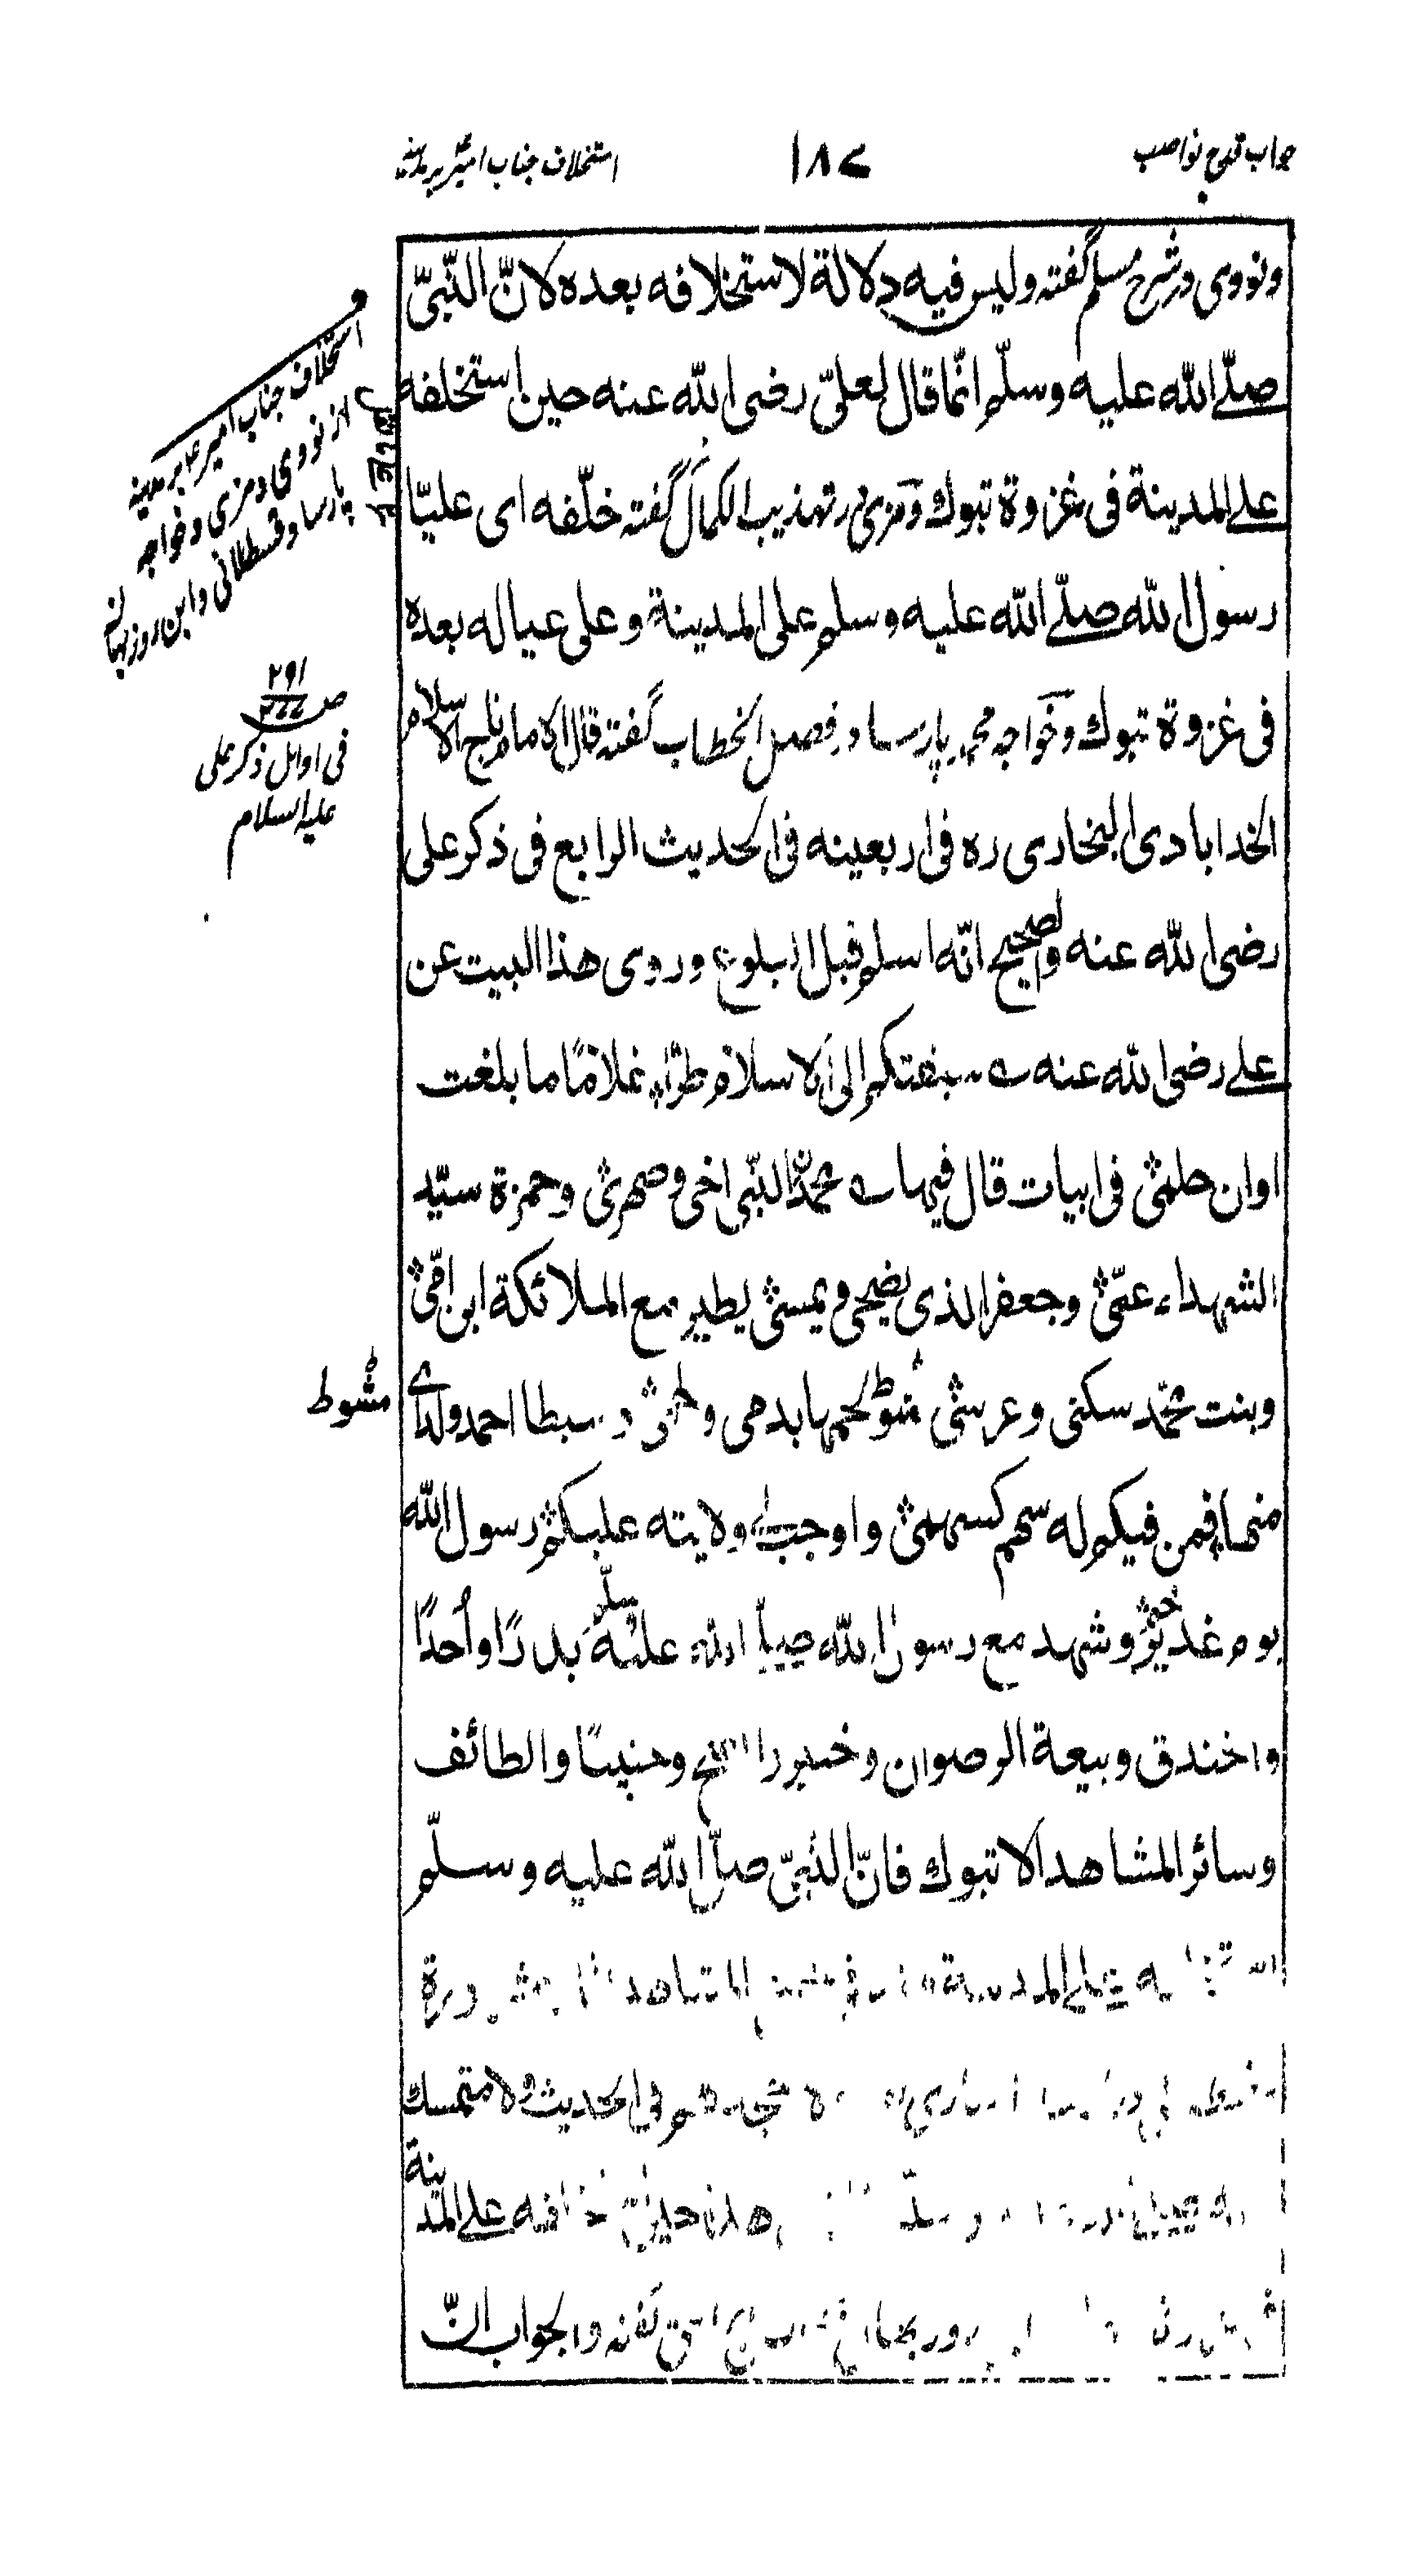 جواب قدح نواصب
۱۸۷
استخلاف جناب امیرؑ بر مدینہ
ونووی در شرح مسلم گفته وليس فيه دلالة لاستخلافه بعده لانّ النّبیّ
صلّے الله عليه وسلّم انّما قال لعلیّ رضی الله عنه حين استخلفه
علے المدينة فی غزوة تبوك ومزی در تهذيب الكمال گفته خلّفه ای عليّا
رسول الله صلّے الله عليه وسلم علی المدينة وعلی عياله بعده
فی غزوة تبوك وخواجه محمد پارسا در فصل الخطاب گفته قال الامام تاج الاسلام
الخدابادی البخاری ره فی اربعينه فی الحديث الرابع فی ذكر علی
رضی الله عنه والصحيح انّه اسلم قبل البلوغ وروی هذا البيت عن
علے رضی الله عنه سبقتكم الی الاسلام طرّا غلامًا ما بلغت
اوان حلمی فی ابيات قال فيها محمّد النّبی اخی وصهری وحمزة سيّد
الشهداء عمّی وجعفر الذی يضحی ويمسی يطير مع الملائكة ابن امّی
وبنت محمّد سكنی وعرسی مشوط لحمها بدمی ولحمی وسبطا احمد ولدای
منها فمن فيكم له سهم كسهمی واوجب لے ولايته عليكم رسول الله
يوم غدير خم وشهد مع رسول الله صلّے الله عليه وسلّم بدرًا واُحدًا
والخندق وبيعة الرضوان وخيبر والفتح وحنينًا والطائف
وسائر المشاهد الا تبوك فانّ النّبیّ صلّی الله عليه وسلّم
علے المدينة المشاهد
فی الحديث ولا متمسك
هذا حين خلفه علے المدينة
گفته والجواب انّ
استخلاف جناب امیر ع بر مدینہ
از نووی و مزی و خواجہ
پارسا و قسطلانی و ابن روزبهان
ص ۲۹۱
۳۷۷
فی اوائل ذکر علی
علیہ السلام
مشوط